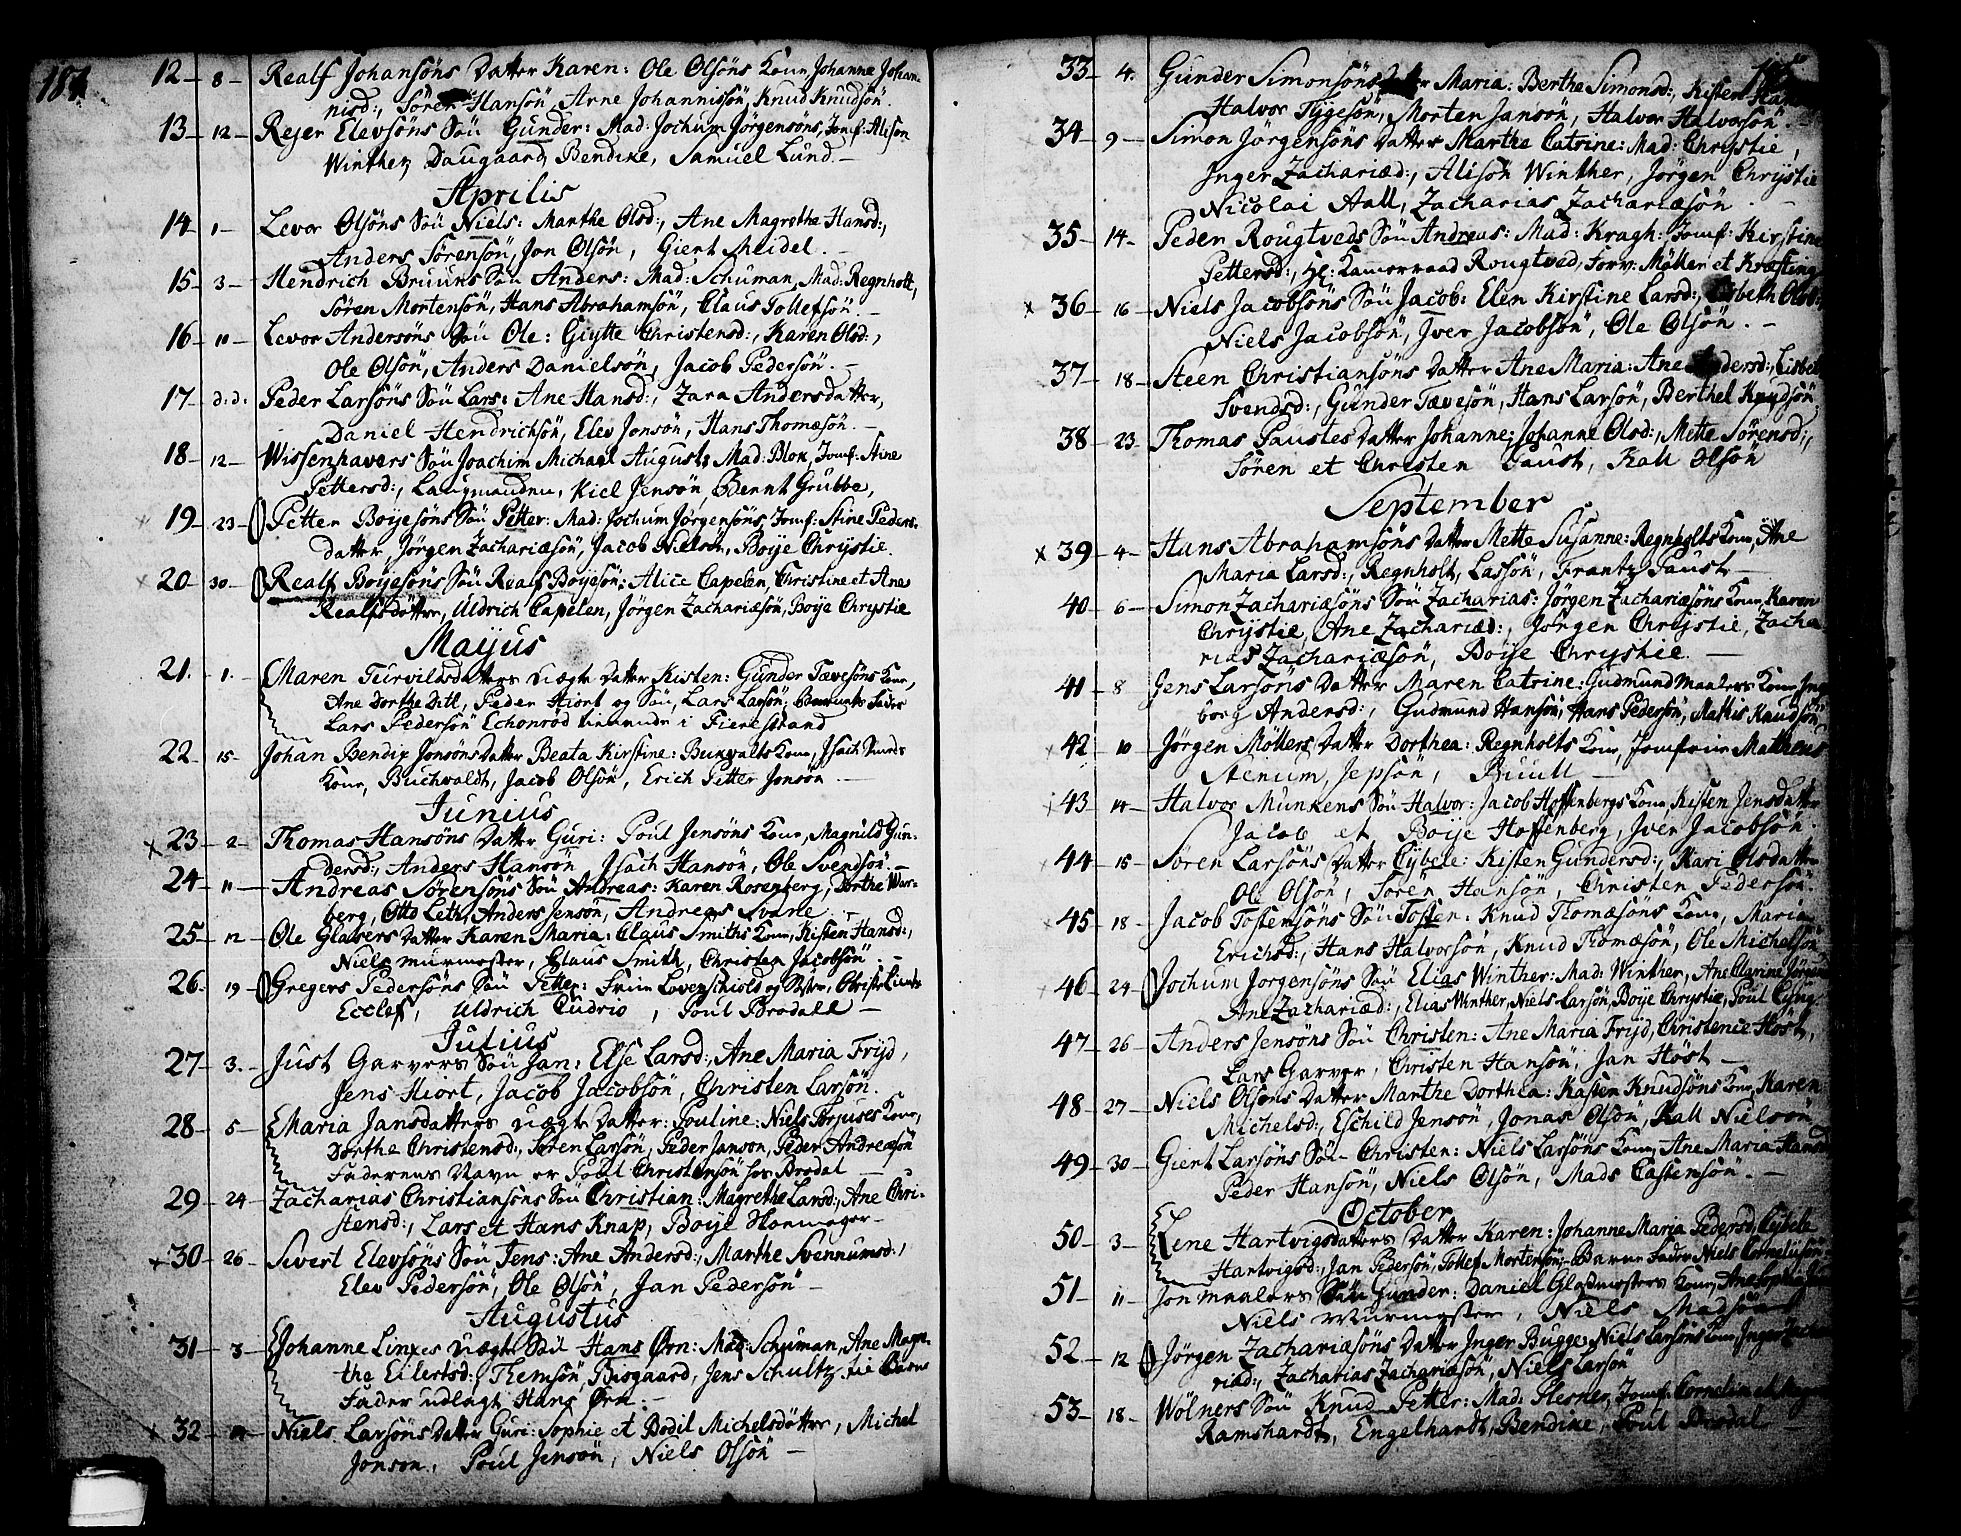 184
12 8 Realf Johansöns Datter Karen: Ole Olsöns Kone, Johanne Johan-
nisd:, Sören Hansön, Arne Johannissön, Knud Knudsön.
13 12 Rejer Elevsöns Sön Gunder: Mad: Jochum Jörgensöns, Jomf: Alison
Winther, Daugaard, Bendixe, Samuel Lund.
Aprilis
14 1 Levor Olsöns Sön Niels: Marthe Olsd:, Ane Magrethe Hansd:,
Anders Sörensön, Jon Olsön, Giert Meidel.
15 3 Hendrich Bruuns Sön Anders: Mad: Schuman, Mad: Regnholt,
Sören Mortensön, Hans Abrahamsön, Claus Tollefsön.
16 11 Levor Andersöns Sön Ole: Giytte Christensd:, Karen Olsd:,
Ole Olsön, Anders Danielsön, Jacob Pedersön.
17 d:d: Peder Larsöns Sön Lars: Ane Hansd:, Zara Andersdatter,
Daniel Hendrichsön, Elev Jonsön, Hans Thomæsön.
18 12 Wissenhavers Sön Joachim Michael August: Mad: Blok, Jomf: Stine
Pettersd:, Laugmanden, Kiel Jensön, Bernt Grubbe,
19 23 Petter Boijesöns Sön Petter: Mad: Jochum Jörgensöns, Jomf: Stine Peders-
datter, Jörgen Zachariæsön, Jacob Nielsön, Boije Chrystie.
20 30 Realf Boijesöns Sön Realf Boijesön: Alice Capelen, Christine et Ane
Realfsdötter, Uldrich Capelen, Jörgen Zachariæsön, Boije Chrystie
Maijus
21. 1. Maren Turvilsdatters uægte Datter Kisten: Gunder Tævesöns Kone,
Ane Dorthe Ditl, Peder Hiort og Sön, Lars Larsön; Barnets Fader
Lars Pedersön Echonröd i Fierestrand
22 15 Johan Bendix Jonsöns Datter Beata Kirstine: Kone, Isach Smeds
Kone, Buchwaldt, Jacob Olsön, Erich Petter Jonsön.
Junius
23 2 Thomas Hansöns Datter Guri: Poul Jensöns Kone, Magnild Gun-
dersd:, Anders Hansön, Isach Hansön, Ole Svendsön
24 11 Andreas Sörensöns Sön Andreas: Karen Rosenberg, Dorthe War-
berg, Otto Leth, Anders Jensön, Andreas Svane
25 12 Ole Glasers Datter Karen Maria: Claus Smiths Kone, Kisten Hansd:,
Niels Murmester, Claus Smith, Christen Jacobsön
26. 19 Gregers Pedersöns Sön Petter: Frue Lovenschiold og Syster,
Eccles, Uldrich Cudrio, Poul Brodall
Julius
27 3. Just Garvers Sön Jan: Else Larsd:, Ane Maria Fryd,
Jens Hiort, Jacob Jacobsön, Christen Larsön.
28 5 Maria Jansdatters uægte Datter: Pouline: Niels Torjuses Kone,
Dorthe Christensd:, Sören Larsön, Peder Janson, Peder Andreæsön
Faderens Navn er Poul Christensön hos Brodal
29 24 Zacharias Christiansöns Sön Christian: Magrethe Larsd:, Ane Chri-
stensd:, Lars et Hans Knap, Boije Skomager
30 26 Sivert Elevsöns Sön Jens: Ane Andersd:, Marthe Svennumsd:,
Elev Pedersön, Ole Olsön, Jan Pedersön
Augustus
31 3 Johanne Linxes uægte Sön Hans Örn: Mad: Schuman, Ane Magre-
the Eilertsd:, Themsön, Bisgaard, Jens Schultz. til Barne
Fader udlagt Hans Örn.
32 14 Niels Larsöns Datter Guri: Sophie et Bodil Michelsdötter, Michel
Jonson, Poul Jensön, Niels Olsön
185
33 4. Gunder Simonsöns Datter Maria: Berthe Simonsd:, Kisten
Halvor Tygesön, Morten Jansön, Halvor Halvorsön.
34 9 Simon Jörgensöns Datter Marthe Catrine: Mad: Chrystie,
Inger Zachariæd:, Alison Winther, Jörgen Chrystie
Nicolai Aall, Zacharias Zachariæsön
35 14 Peder Rougtveds Sön Andreas: Mad: Kragh: Jomf: Kirstine
Pettersd:, Hl: Kamerraad Rougtved, Forv: Möller et Kræfting
36 16 Niels Jacobsöns Sön Jacob: Elen Kirstine Larsd:, Lisbeth Olsd:,
Niels Jacobsön, Iver Jacobsön, Ole Olsön.
37 18 Steen Christiansöns Datter Ane Maria: Ane Andersd:, Lisbet
Svendsd:, Gunder Tævesön, Hans Larsön, Berthel Knudsön
38 23 Thomas Faustes Datter Johanne: Johanne Olsd:, Mette Sörensd:,
Sören et Christen Faust, Kall Olsön
September
39 4 Hans Abrahamsöns Datter Mette Susanne: Regnholts Kone, Ane
Maria Larsd:, Regnholt, Lassön, Frantz Faust
40 6 Simon Zachariæsöns Sön Zacharias: Jörgen Zachariæsöns Kone, Karen
Chrystie, Ane Zachariæd:, Jörgen Chrystie, Zacha-
rias Zachariæsön, Boije Chrystie.
41 8 Jens Larsöns Datter Maren Catrine: Gudmund Maalers Kone, Inge-
borg Andersd:, Gudmund Hansön, Hans Pedersön, Mathis Knudsön
42 10 Jörgen Möllers Datter Dorthea: Regnholts Kone, Jomfrue Matheus
Stenum, Jepsön, Buull
43 14 Halvor Munkens Sön Halvor: Jacob Hoffenbergs Kone, Kisten Jensdatter
Jacob et Boije Hoffenberg, Iver Jacobsön.
44 15 Sören Larsöns Datter Cybele: Kisten Gundersd:, Kari Olsdatter
Ole Olsön, Sören Hansön, Christen Pedersön.
45 18 Jacob Tostensöns Sön Tosten: Knud Thomæsöns Kone, Maria
Erichsd:, Hans Halvorsön, Knud Thomæsön, Ole Michelsön
46 24 Jochum Jörgensöns Sön Elias Winther: Mad: Winther, Ane Clarine Jörgens
Ane Zachariæd:, Elias Winther, Niels Larsön, Boije Chrystie, Poul
47 26 Anders Jensöns Sön Christen: Ane Maria Fryd, Christence Höst,
Lars Garver, Christen Hansön, Jan Höst
48 27 Niels Olsöns Datter Marthe Dorthea: Kasten Knudsöns Kone, Maren
Michelsd:, Eschild Jensön, Jonas Olsön, Kall Nielsön
49 30 Giert Larsöns Sön Christen: Niels Larsöns Kone, Ane Maria Hans
Peder Hansön, Niels Olsön, Mads Castensön
October
50 3 Lene Hartvigsdatters Datter Karen: Johanne Maria Pedersd, Cybele
Hartvigsd:, Jan Pedersön, Tollef Mortensön, Barne Fader Niels Corneliisön
51 11 Jon Maalers Sön Gunder: Daniel Glasmesters Kone, Ane Sophia
Niels Murmester, Niels Madsön
52 12 Jörgen Zachariæsöns Datter Inger Bugge: Niels Larsöns Kone, Inger Zacha-
riæd:, Zacharias Zachariæsön, Niels Larsön
53 18 Wölners Sön Knud Petter: Mad: Plesner, Jomf: Cornelia et
Ramshardt, Engelhardt, Bendixe, Poul Brodal